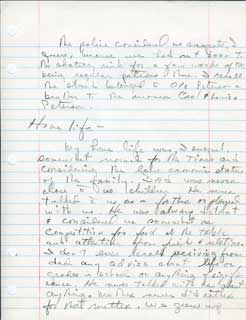 The police considered us suspects, I
guess, because we had not been to
the skating rink for a few weeks after
being regular patrons there. I recall
the slough belonged to O/o Peterson a
brother to the woman Cad Lavine
Peterson.
Home life -
My home life was, I suspect,
somewhat normal for the times and
considering the low economic status
of the family. Dad was never
close to us children. He never
talked to us as a father or played
with us. He was always distant
& considered us somewhat as
competition for food at the table
and attention from friends & relatives.
I don't ever recall receiving from
him any advice about life or
grades in school or anything of signifi-
cance. He never talked with me about
anything. Mother never did either
for that matter. We grew up